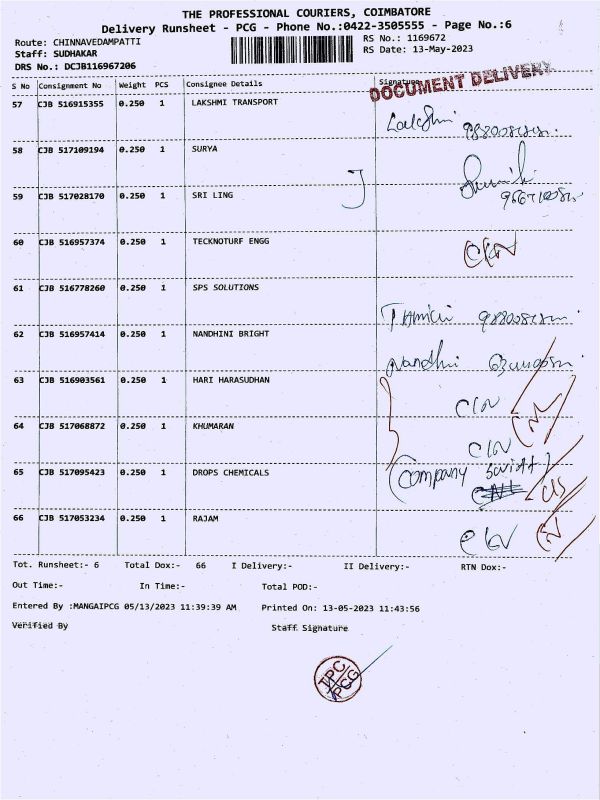 THE PROFESSIONAL COURIERS, COIMBATORE
Delivery Runsheet - PCG - Phone No.:0422-3505555 - Page No.:6
Route: CHINNAVEDAMPATTI
RS No.: 1169672
Staff: SUDHAKAR
RS Date: 13-May-2023
DRS No.: DCJB116967206
S No Consignment No Weight PCS Consignee Details Signature
DOCUMENT DELIVERY
57 CJB 516915355 0.250 1 LAKSHMI TRANSPORT
58 CJB 517109194 0.250 1 SURYA
59 CJB 517028170 0.250 1 SRI LING
60 CJB 516957374 0.250 1 TECKNOTURF ENGG
61 CJB 516778260 0.250 1 SPS SOLUTIONS
62 CJB 516957414 0.250 1 NANDHINI BRIGHT
63 CJB 516903561 0.250 1 HARI HARASUDHAN
64 CJB 517068872 0.250 1 KHUMARAN
65 CJB 517095423 0.250 1 DROPS CHEMICALS Company
66 CJB 517053234 0.250 1 RAJAM
Tot. Runsheet:- 6 Total Dox:- 66 I Delivery:- II Delivery:- RTN Dox:-
Out Time:- In Time:- Total POD:-
Entered By :MANGAIPCG 05/13/2023 11:39:39 AM Printed On: 13-05-2023 11:43:56
Verified By Staff Signature
TPC
PCG